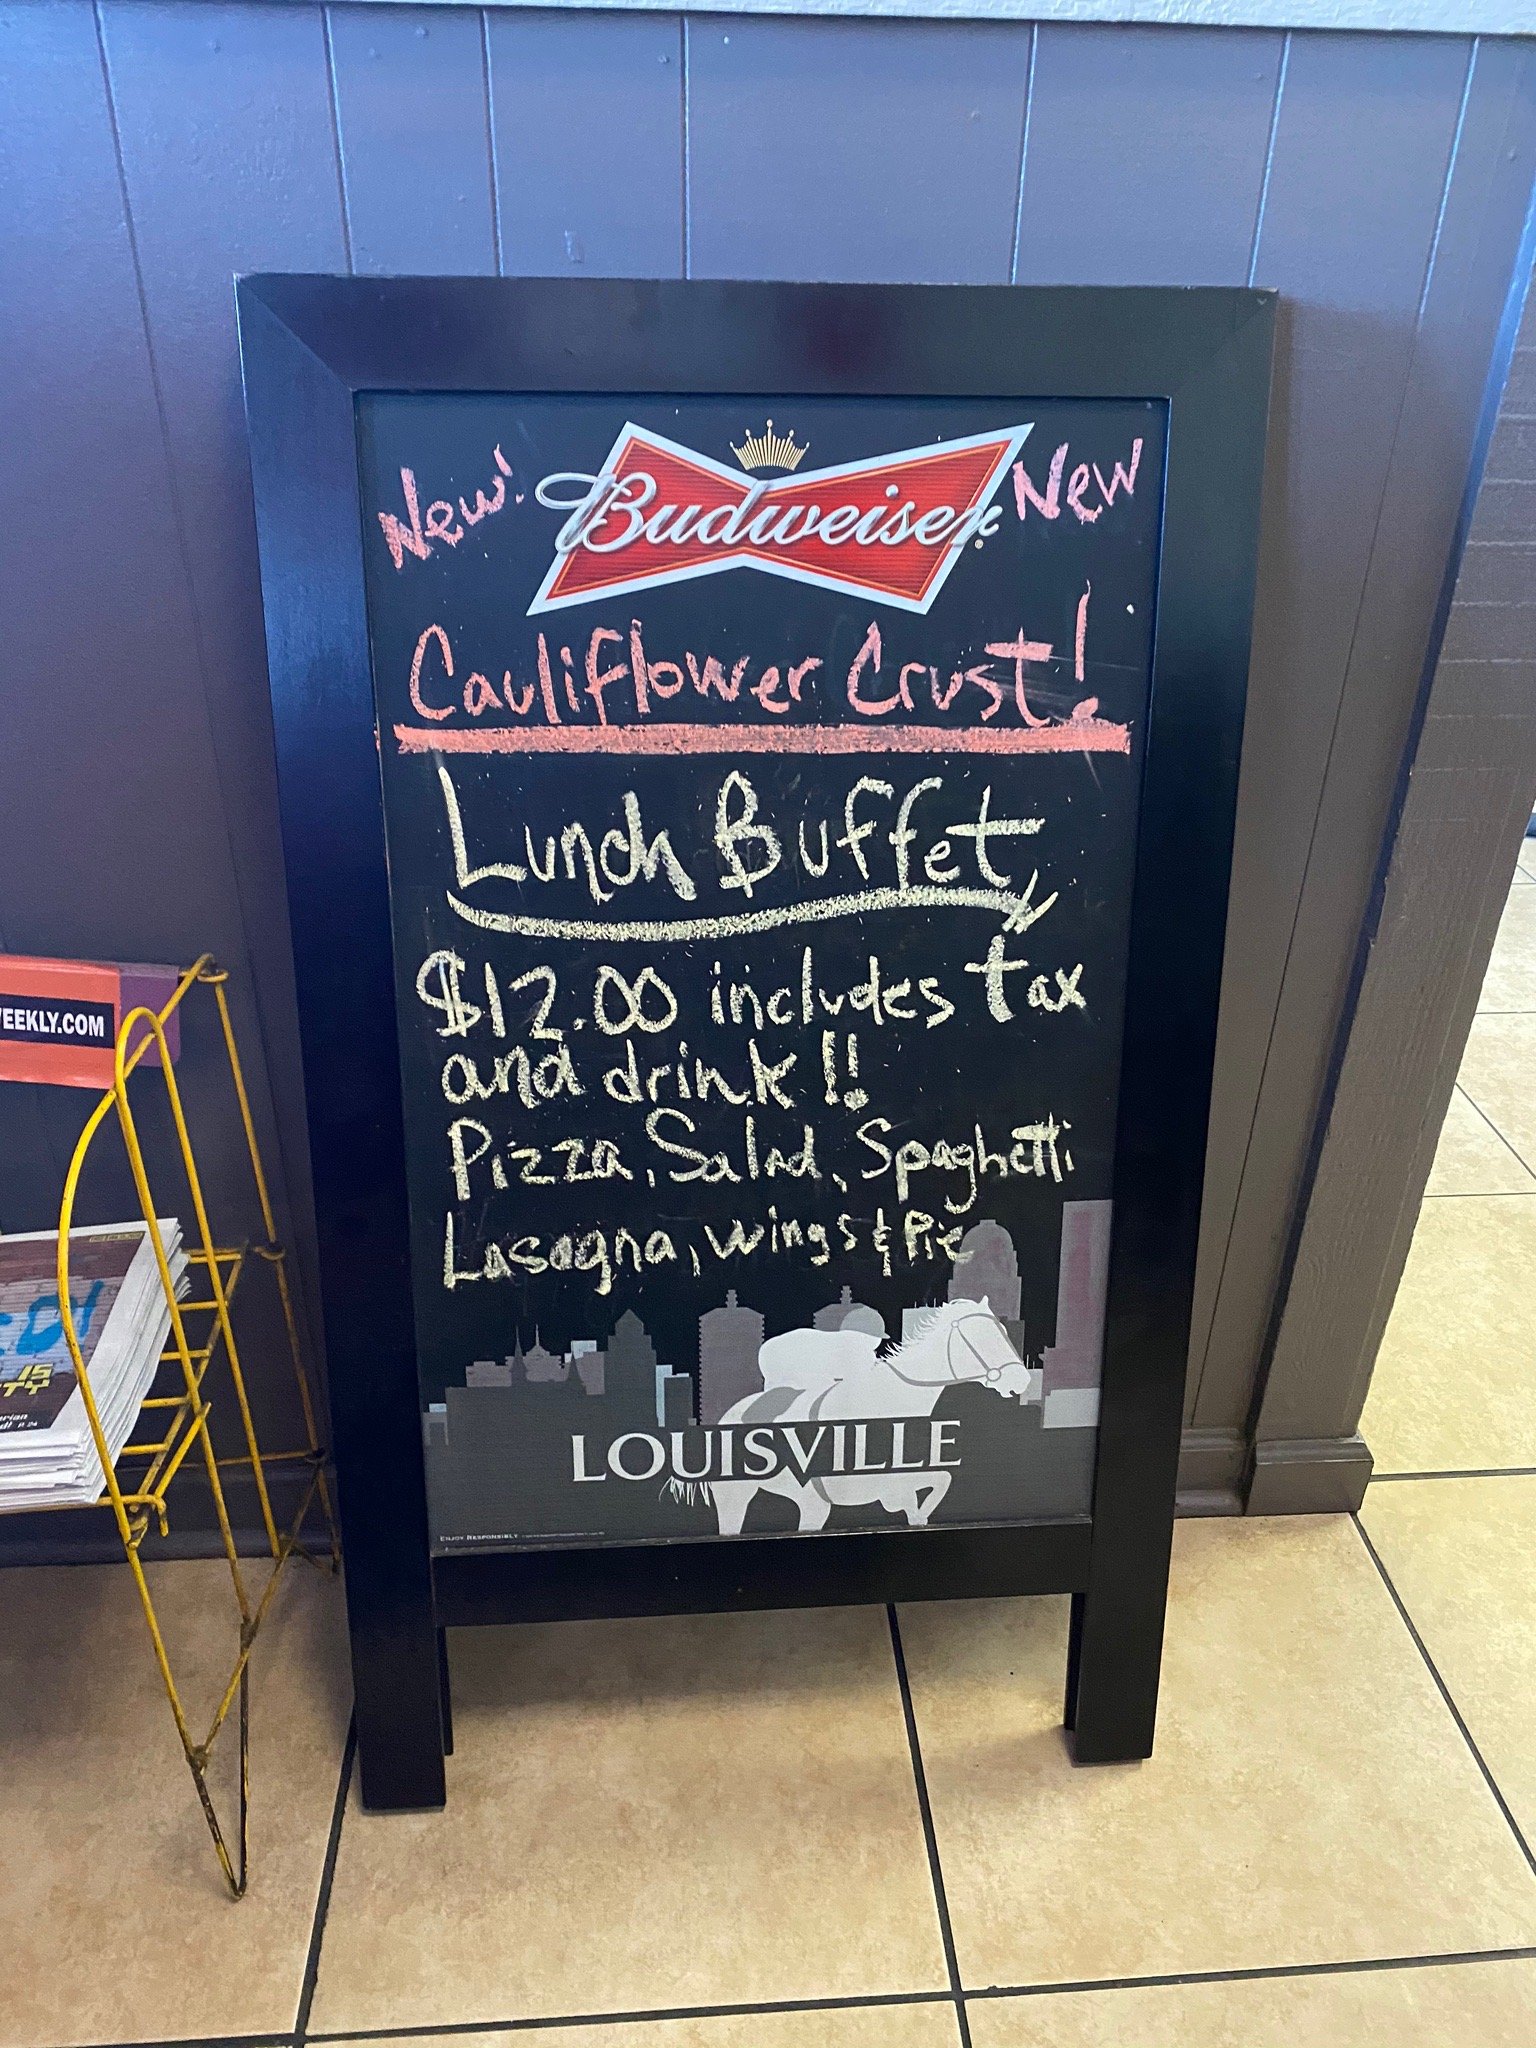 New!
Budweiser
New
Cauliflower Crust!
Lunch Buffet
$12.00 includes tax
and drink!!
Pizza, Salad, Spaghetti
Lasagna, wings & Pie
LOUISVILLE
ENJOY RESPONSIBLY
EEKLY.COM
IS